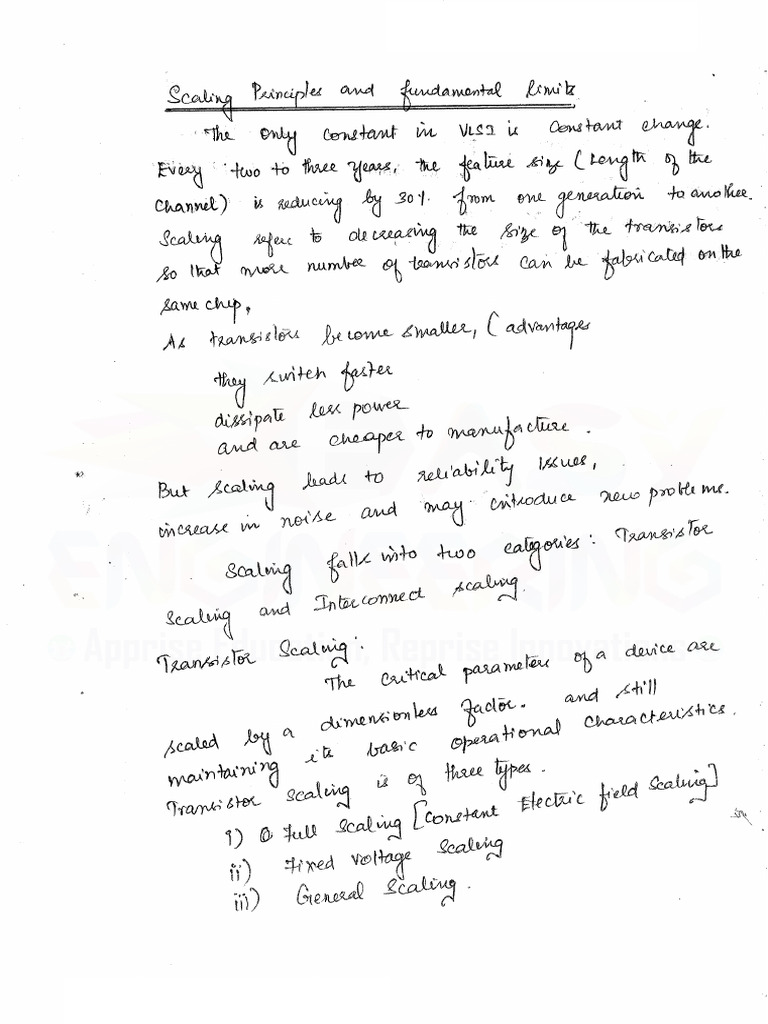 Scaling Principles and fundamental limits
The only constant in VLSI is constant change.
Every two to three years, the feature size (Length of the
channel) is reducing by 30% from one generation to another.
Scaling refers to decreasing the size of the transistors
so that more number of transistors can be fabricated on the
same chip.
As transistors become smaller, (advantages
they switch faster
dissipate less power
and are cheaper to manufacture.
But scaling leads to reliability issues,
increase in noise and may introduce new problems.
Scaling falls into two categories: Transistor
Scaling and Interconnect scaling.
Transistor Scaling:
The critical parameters of a device are
scaled by a dimensionless factor. and still
maintaining its basic operational characteristics.
Transistor scaling is of three types.
i) Full Scaling [Constant Electric field Scaling]
ii) Fixed Voltage Scaling
iii) General Scaling.
EASY
ENGINEERING
Apprise Education, Reprise Innovations